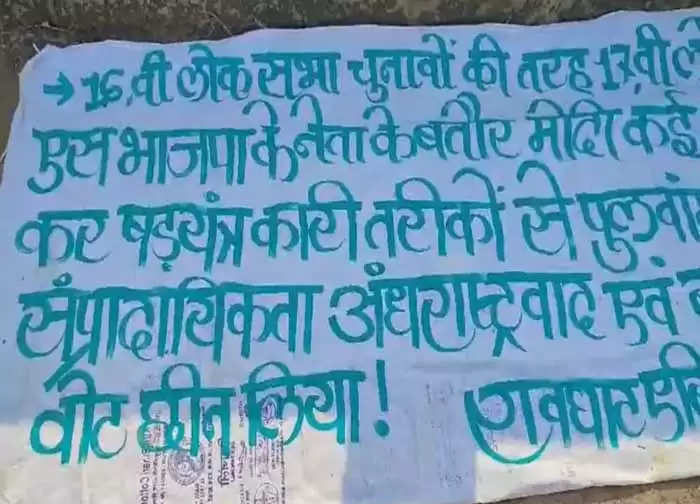 → 16,वी लोक सभा चुनावों की तरह 17,वी
एस भाजपा के नेता के बतौर मोदि कई
कर षड़यंत्र कारी तरीकों से पुलवां
संप्रादायिकता अंधराष्ट्रवाद एवं
वोट छीन लिया! रावघाट